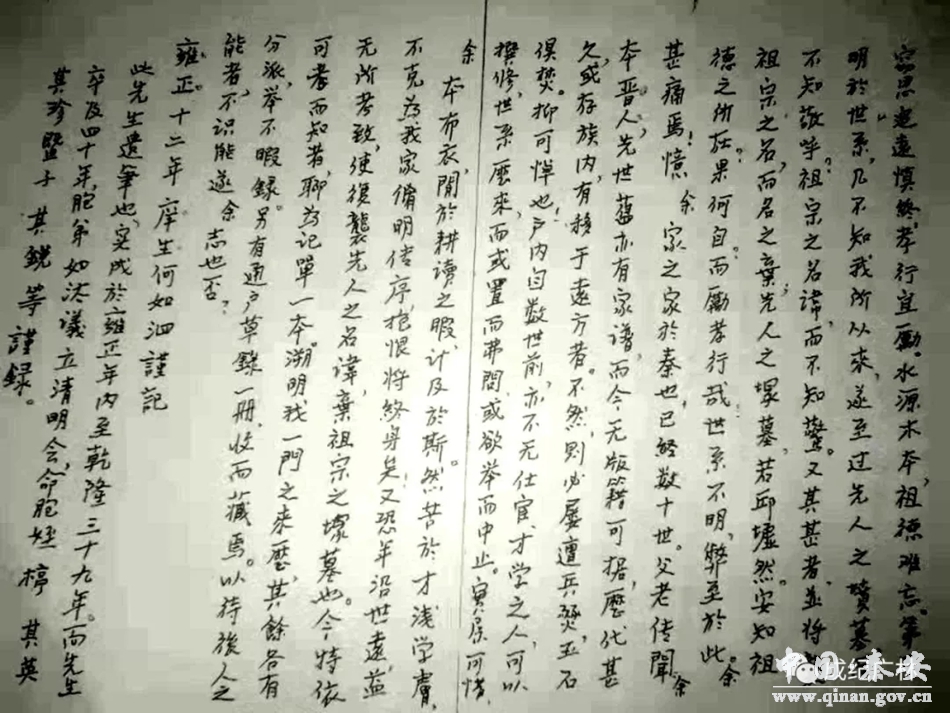 窃思追远慎终,孝行宜励。水源木本,祖德难忘。第
明於世系,几不知我所以来,遂至过先人之賁墓
不知敬呼。祖宗之名諱,而不知驚。又其甚者,並将
祖宗之名,而名之棄先人之塚墓,若邱墟然。安知祖
德之所在?果何自?而勵孝行哉?世系不明,弊至於此。余
甚痛焉!憶余家之家於秦也,已经数十世。父老传聞,余
本晋人,先世蓝亦有家谱,而今无版籍可据,歷代甚
久,或存族内,有移于遠方者。不然,則必屡遭兵燹,玉石
俱焚。抑可悼也!户内自数世前,亦不无仕官、才学之人,可以
撰修,世系歷來,而或置而弗問,或欲举而中止。寔属可惜,
余
本布衣,閒於耕读之暇,计及於斯。然苦於才浅学膚,
不克为我家脩明信序,抱恨将终身矣!又恐年沿世遠,益
无所考致,使復襲先人之名諱,棄祖宗之塚墓也。今特依
可考而知者,聊为记單一本,溯明我一門之来歷,其餘各有
分派,举不暇録。另有通户草錄一册,收而藏焉。以待後人之
能者,不识能遂余志也否?
雍正十二年庠生何如泗謹記
此先生遺筆也,实成於雍正年内,至乾隆三十九年。而先生
卒及四十年,胞弟如洙議立清明会,命胞姪 椁 其英
其珍暨子其锐等謹録。
中国秦安
成纪广播
www.qinan.gov.cn